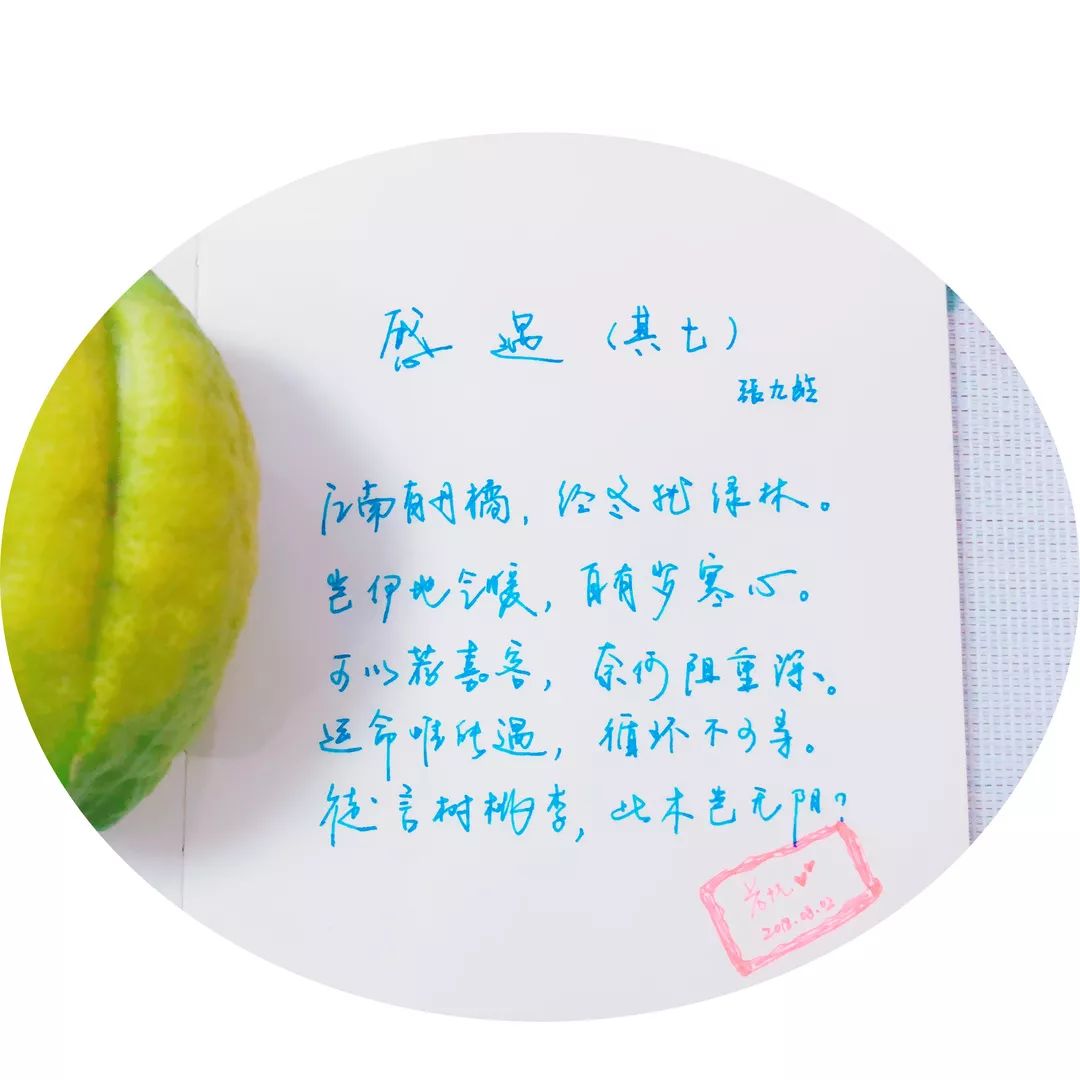 感遇（其七）
张九龄
江南有丹橘，经冬犹绿林。
岂伊地气暖，自有岁寒心。
可以荐嘉客，奈何阻重深。
运命唯所遇，循环不可寻。
徒言树桃李，此木岂无阴？
2018.08.02